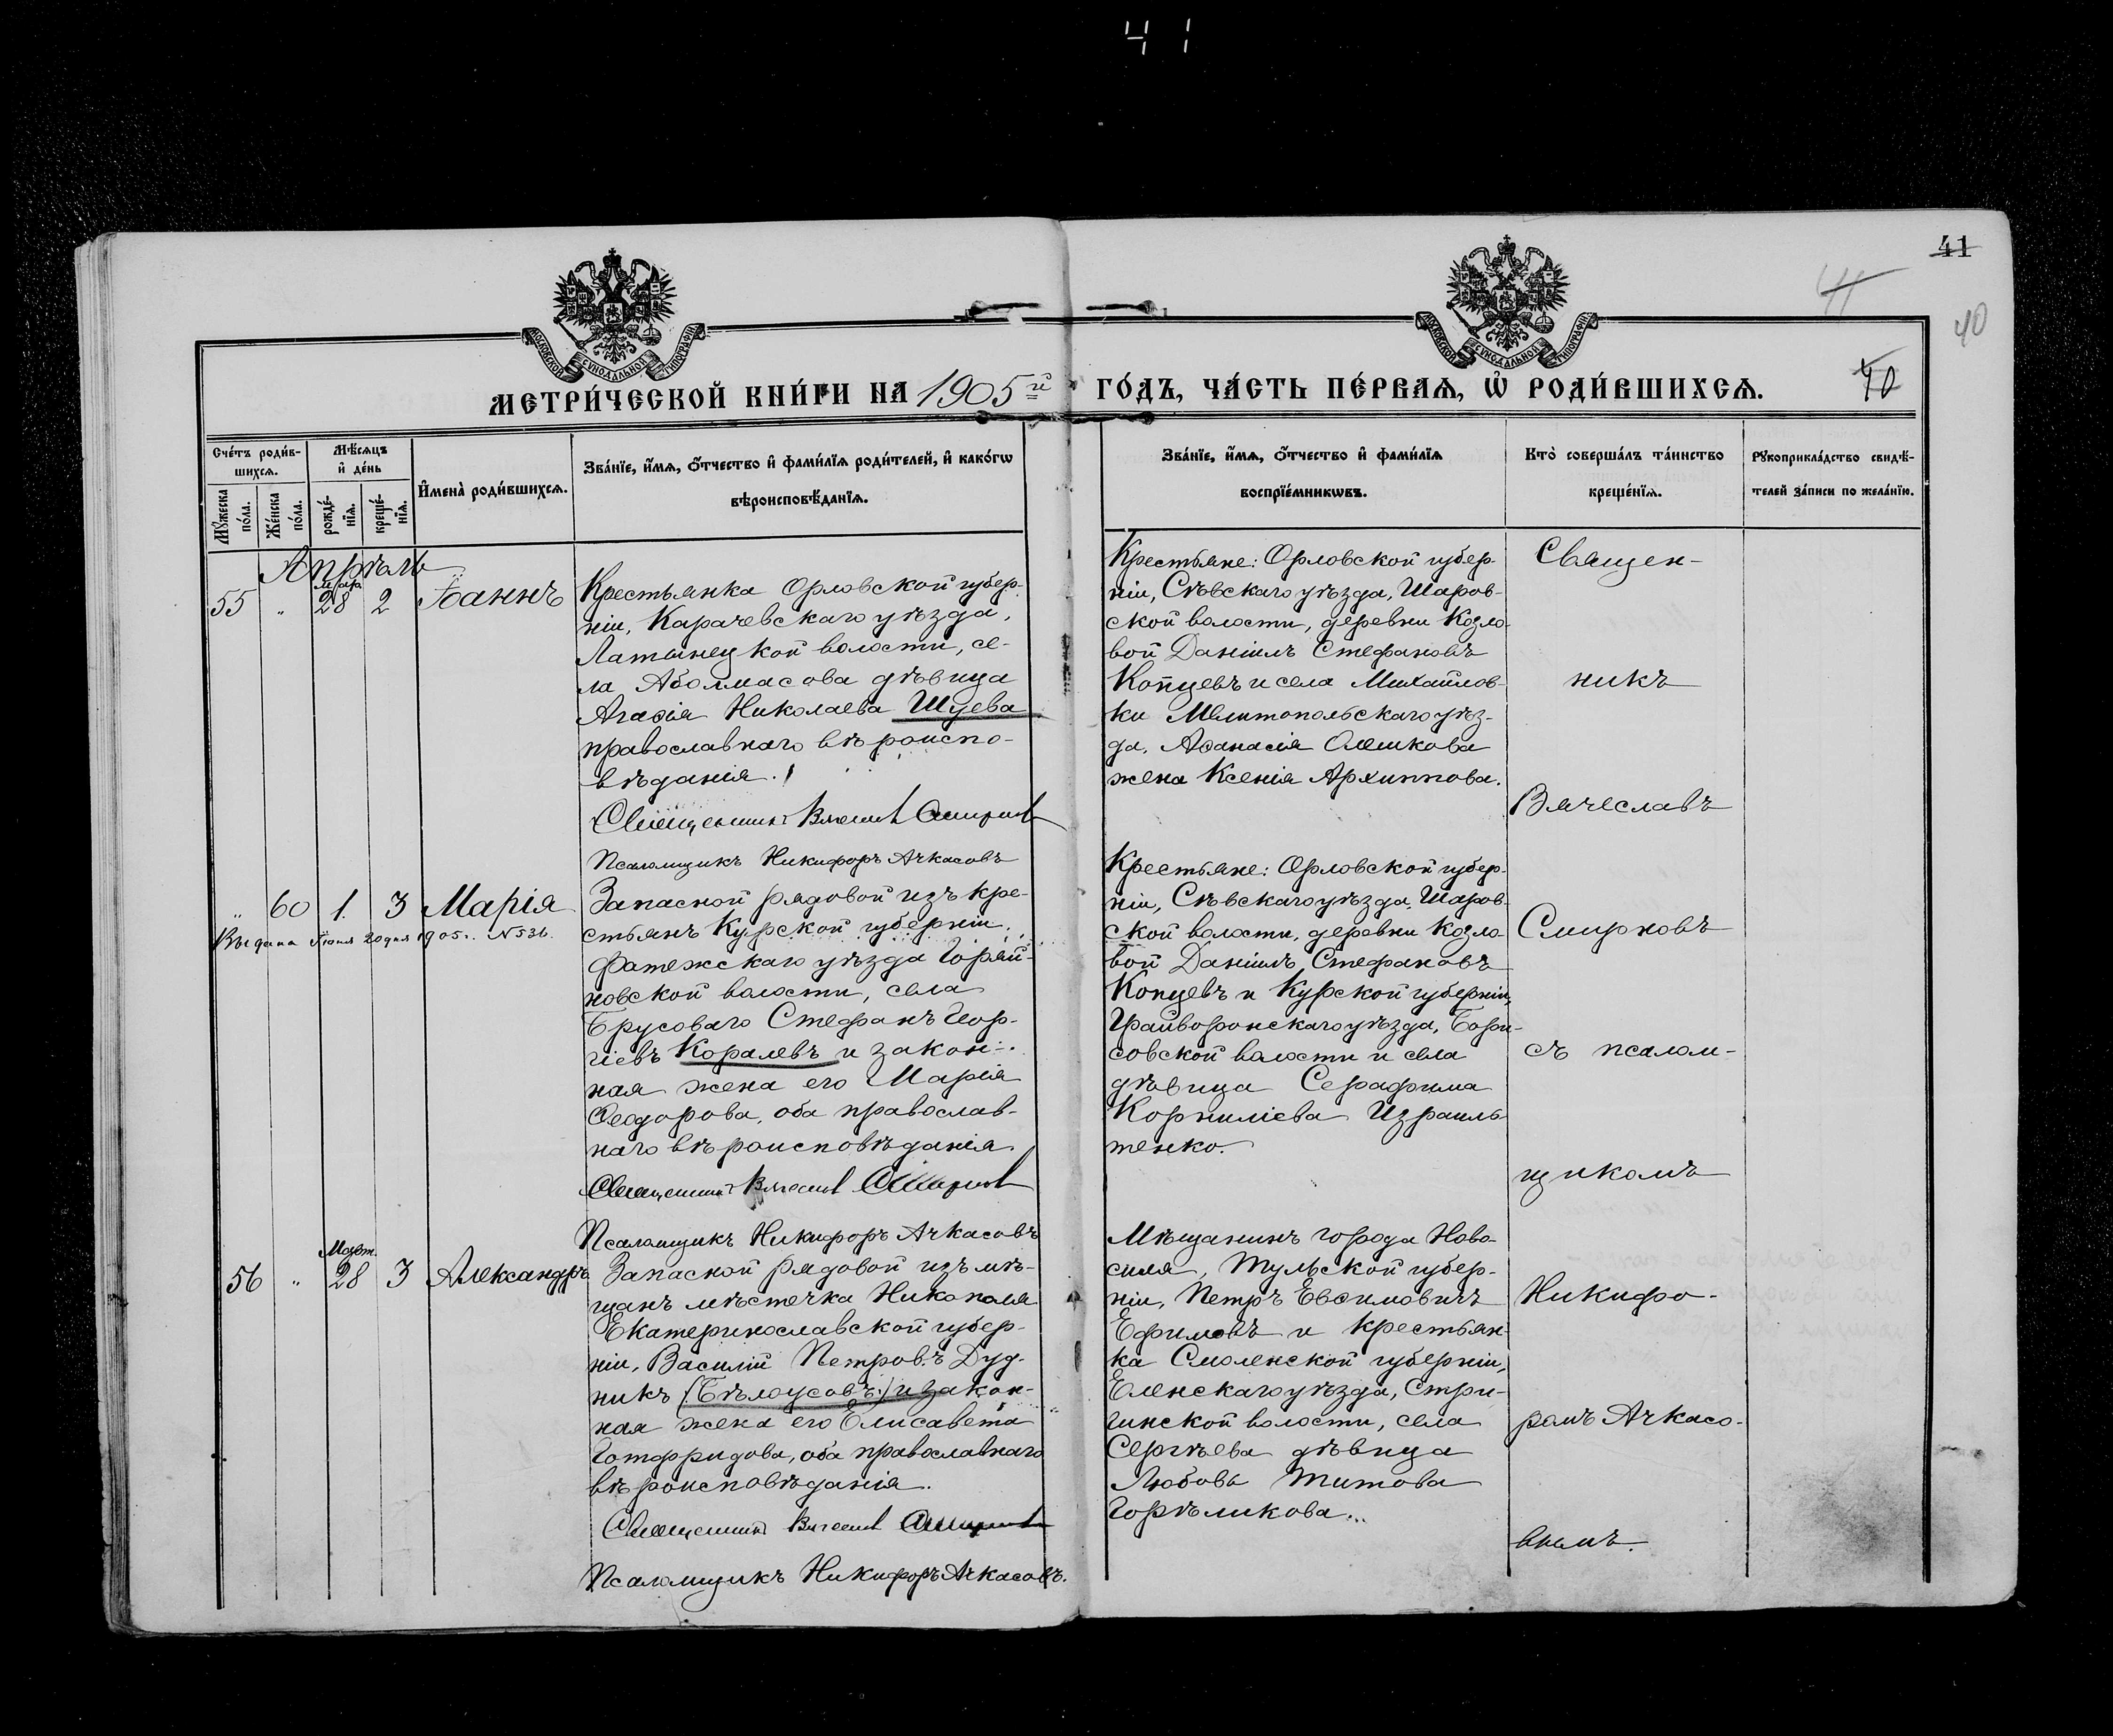 41
41
41
40
40
МОСКОВСКОЙ СѴНОДАЛЬНОЙ ТИПОГРАФІИ
МОСКОВСКОЙ СѴНОДАЛЬНОЙ ТИПОГРАФІИ
МЕТРИ́ЧЕСКОЙ КНИ́ГИ НА 1905й ГО́ДЪ, ЧА́СТЬ ПЕ́РВАЯ, Ѡ҆ РОДИ́ВШИХСЯ.
Сче́тъ роди́в-
шихся.
Мꙋ́жеска по́ла.
Же́нска по́ла.
Мѣ́сяцъ
и҆ де́нь
рожде́-
нїя.
креще́-
нїя.
И҆мена̀ роди́вшихся.
Зва́нїе, и҆́мя, ѻ҆́тчество и҆ фами́лїя роди́телей, и҆ како́гѡ
вѣроисповѣ́данїя.
Зва́нїе, и҆́мя, ѻ҆́тчество и҆ фами́лїя
воспрїе́мникѡвъ.
Кто̀ соверша́лъ та́инство
креще́нїя.
Рꙋкоприкла́дство свидѣ́-
телей за́писи по жела́нїю.
Апрѣль
Мар.
55 " 28 2 Іоаннъ
Крестьянка Орловской губер-
ніи, Карачевскаго уѣзда,
Латынецкой волости, се-
ла Аболмасова дѣвица
Агаѳія Николаева Шуева
православнаго вѣроиспо-
вѣданія.
Священникъ Вячеславъ Смирновъ
Псаломщикъ Никифоръ Ачкасовъ
Крестьяне: Орловской губер-
ніи, Сѣвскаго уѣзда, Шаров-
ской волости, деревни Козло-
вой Даніилъ Стефановъ
Копцевъ и села Михайлов-
ки Мелитопольскаго уѣз-
да, Аѳанасія Олешкова
жена Ксенія Архиппова.
" 60 1. 3 Марія
Выдана Іюня 20 дня 1905 г. №536.
Запасной рядовой изъ кре-
стьянъ Курской губерніи,
Фатежскаго уѣзда Горяй-
новской волости, села
Брусоваго Стефанъ Геор-
гіевъ Коралевъ и закон-
ная жена его Марія
Ѳеодорова, оба православ-
наго вѣроисповѣданія.
Священникъ Вячеславъ Смирновъ
Псаломщикъ Никифоръ Ачкасовъ
Крестьяне: Орловской губер-
ніи, Сѣвскаго уѣзда, Шаров-
ской волости, деревни Козло-
вой Даніилъ Стефановъ
Копцевъ и Курской губерніи,
Грайворонскаго уѣзда, Бори-
совской волости и села
дѣвица Серафима
Корнилієва Израиль-
тенко.
Март.
56 " 28 3 Александръ
Запасной рядовой изъ мѣ-
щанъ мѣстечка Никополя
Екатеринославской губер-
ніи, Василій Петровъ Дуд-
никъ (Бѣлоусовъ) и закон-
ная жена его Елисавета
Готфридова, оба православнаго
вѣроисповѣданія.
Священникъ Вячеславъ Смирновъ
Псаломщикъ Никифоръ Ачкасовъ.
Мѣщанинъ города Ново-
силя, Тульской губер-
ніи, Петръ Евѳимовичъ
Ефимовъ и крестьян-
ка Смоленской губерніи,
Еленскаго уѣзда, Стри-
гинской волости, села
Сергѣева дѣвица
Любовь Титова
Горѣликова.
Священ-
никъ
Вячеславъ
Смирновъ
съ псалом-
щикомъ
Никифо-
ромъ Ачкасо-
вымъ.